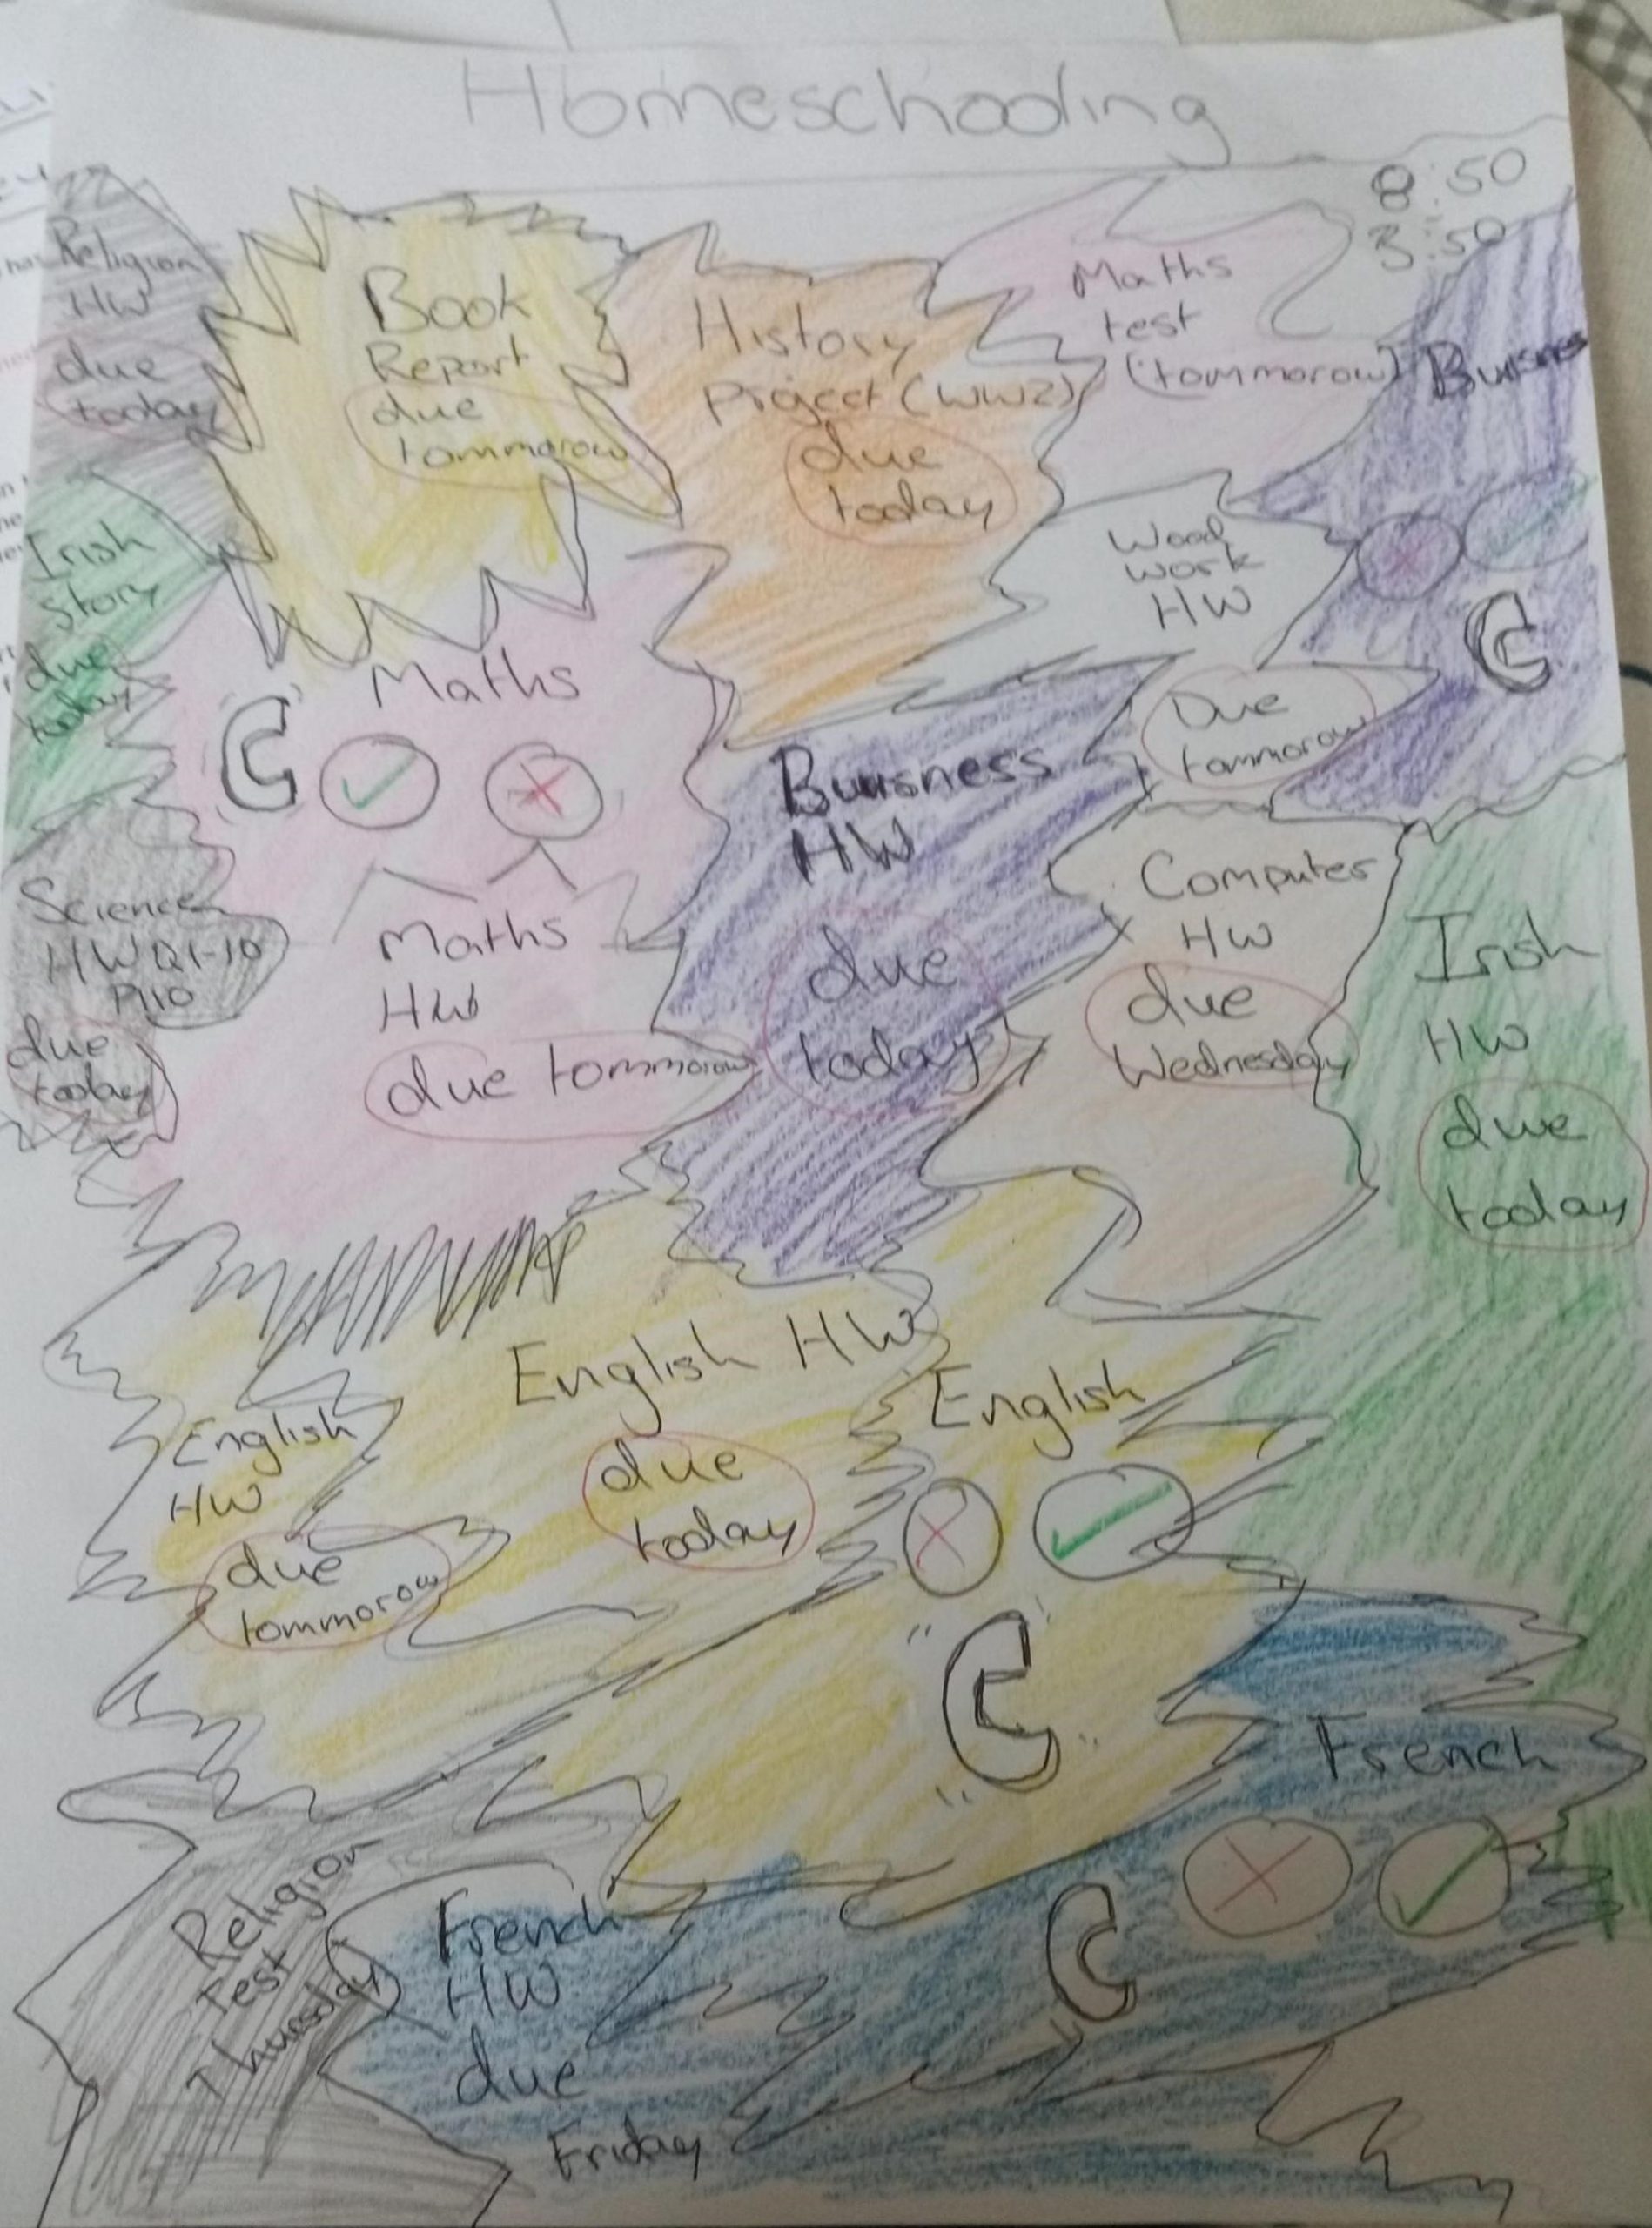 Homeschooling
8:50
3:50
Religion
HW
due
today
Book
Report
due
tommorow
History
Project (WW2)
due
today
Maths
test
(tommorow)
Irish
Story
due
today
Wood
work
HW
Due
tommorow
C
Maths
C
Buisness
HW
due
today
Science
HW Q1-10
P110
due
today
Maths
HW
due tommorow
Computer
HW
due
Wednesday
Irish
HW
due
today
English
HW
due
tommorow
English HW
due
today
English
C
French
C
Religion
Test
Thursday
French
HW
due
Friday